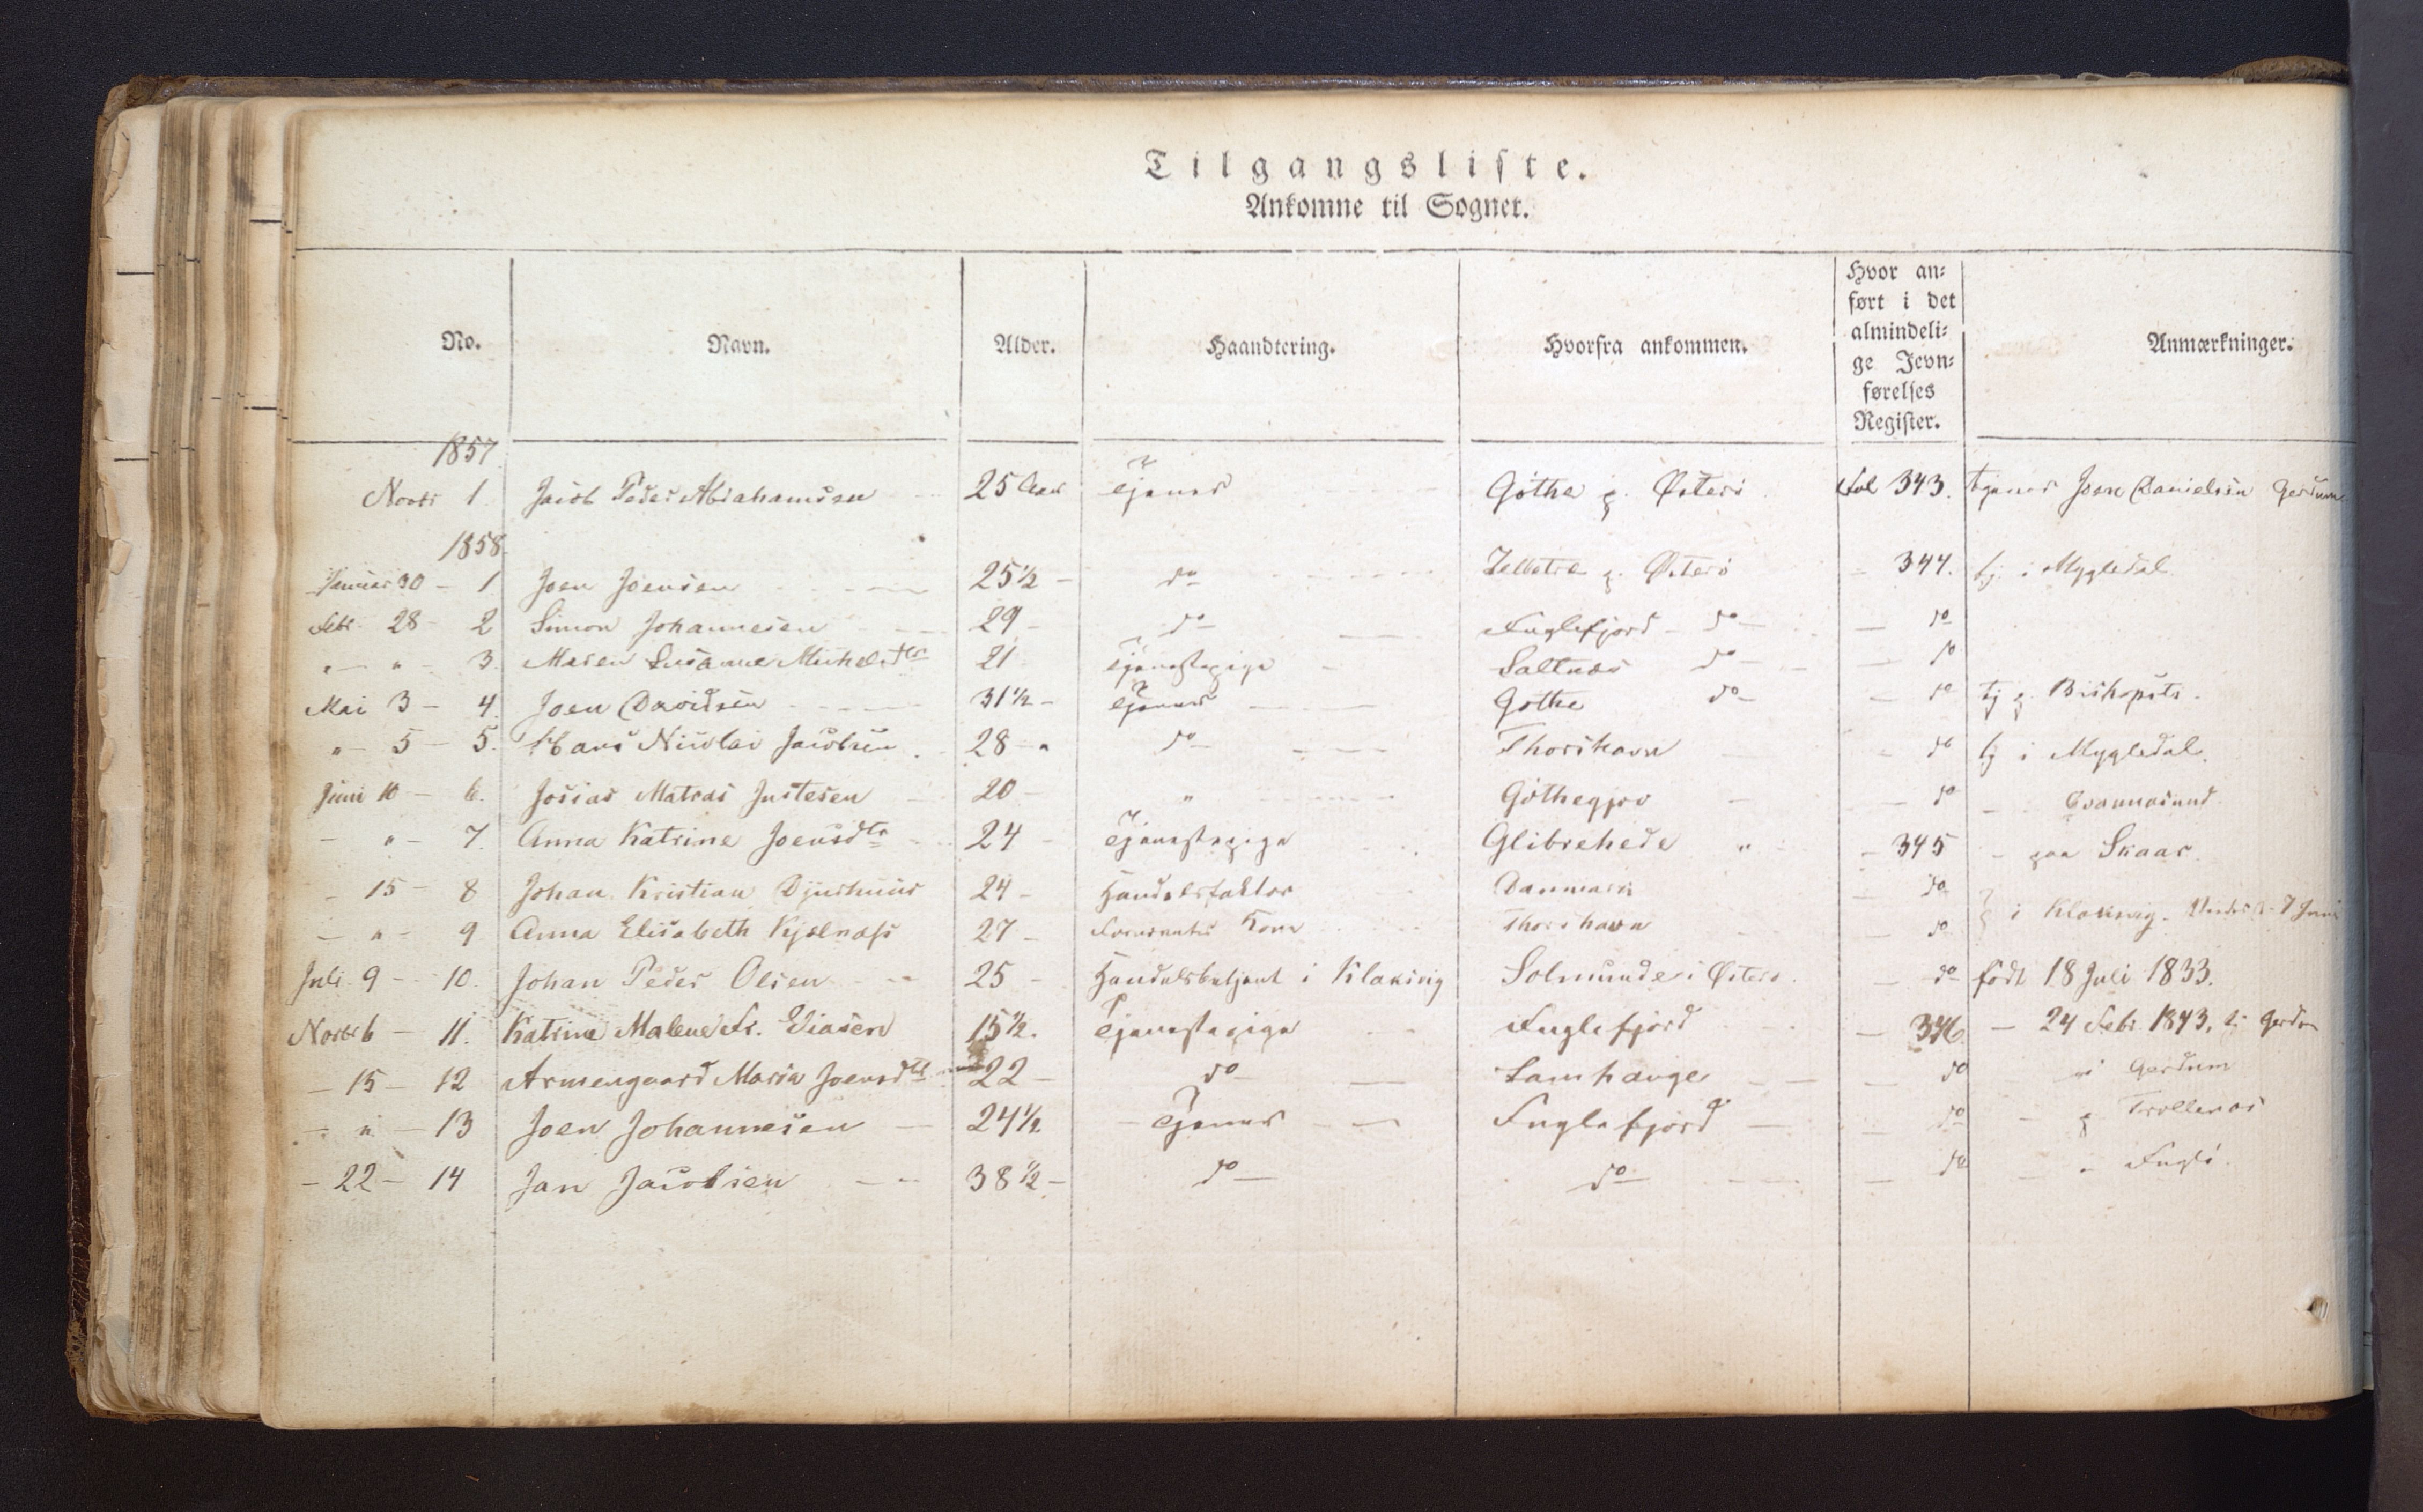 Tilgangsliste.
Ankomne til Sognet.
No. Navn. Alder. Haandtering. Hvorfra ankommen. Hvor an= ført i det almindeli= ge Jevn= førelses Register. Anmærkninger.
1857
Novbr 1 Jacob Peder Abrahamsen 25 Aar Tjener Göthe p. Österö Fol 343. tjener Joen Danielsen Gerdum
1858
Januar 30 - 1 Joen Joensen 25½ - do p. Österö - 344. tj. i Mygledal
Febr. 28 - 2 Simon Johannesen 29 - do Fuglefjord - do - do
" - " - 3. Maren Susanne Michelsdtr 21 Tjenestepige Saltnæs do - do
Mai 3 - 4. Joen Davidsen 31½ - Tjener Göthe do - do tj p. Bishopsts.
" - 5 - 5. Hans Nicolai Jacobsen 28 - " do Thorshavn - do tj i Mygledal.
Juni 10 - 6. Josias Matras Justesen 20 - " Göthegjov - do - Qvannasund
- " - 7. Anna Katrine Joensdtr 24 - Tjenestepige Glibrehede " - 345 - paa Skaar.
- 15 - 8 Johan Kristian Djurhuus 24 - Handelsfaktor Danmark - do
} i Klaksvig. 7 Juni
- " - 9 Anna Elisabeth Kjølnæs 27 - Kone Thorshavn - do
Juli 9 - 10. Johan Peder Olsen 25 - Handelsbetjent i Klaksvig Solmunde i Österö. - do født 18 Juli 1833.
Novbr 6 - 11. Katrine Malene Fr. Eliasen 15½. Tjenestepige Fuglefjord - 346 - 24 Febr. 1843, Gerdum
- 15 - 12 Armengaard Maria Joensdtr 22 - do Lamhauge - do - i Gerdum
- " - 13 Joen Johannesen 24½ - Tjener Fuglefjord - do - p Trollenæs
- 22 - 14 Jan Jacobsen 38½ - do do - do - " Fuglö.